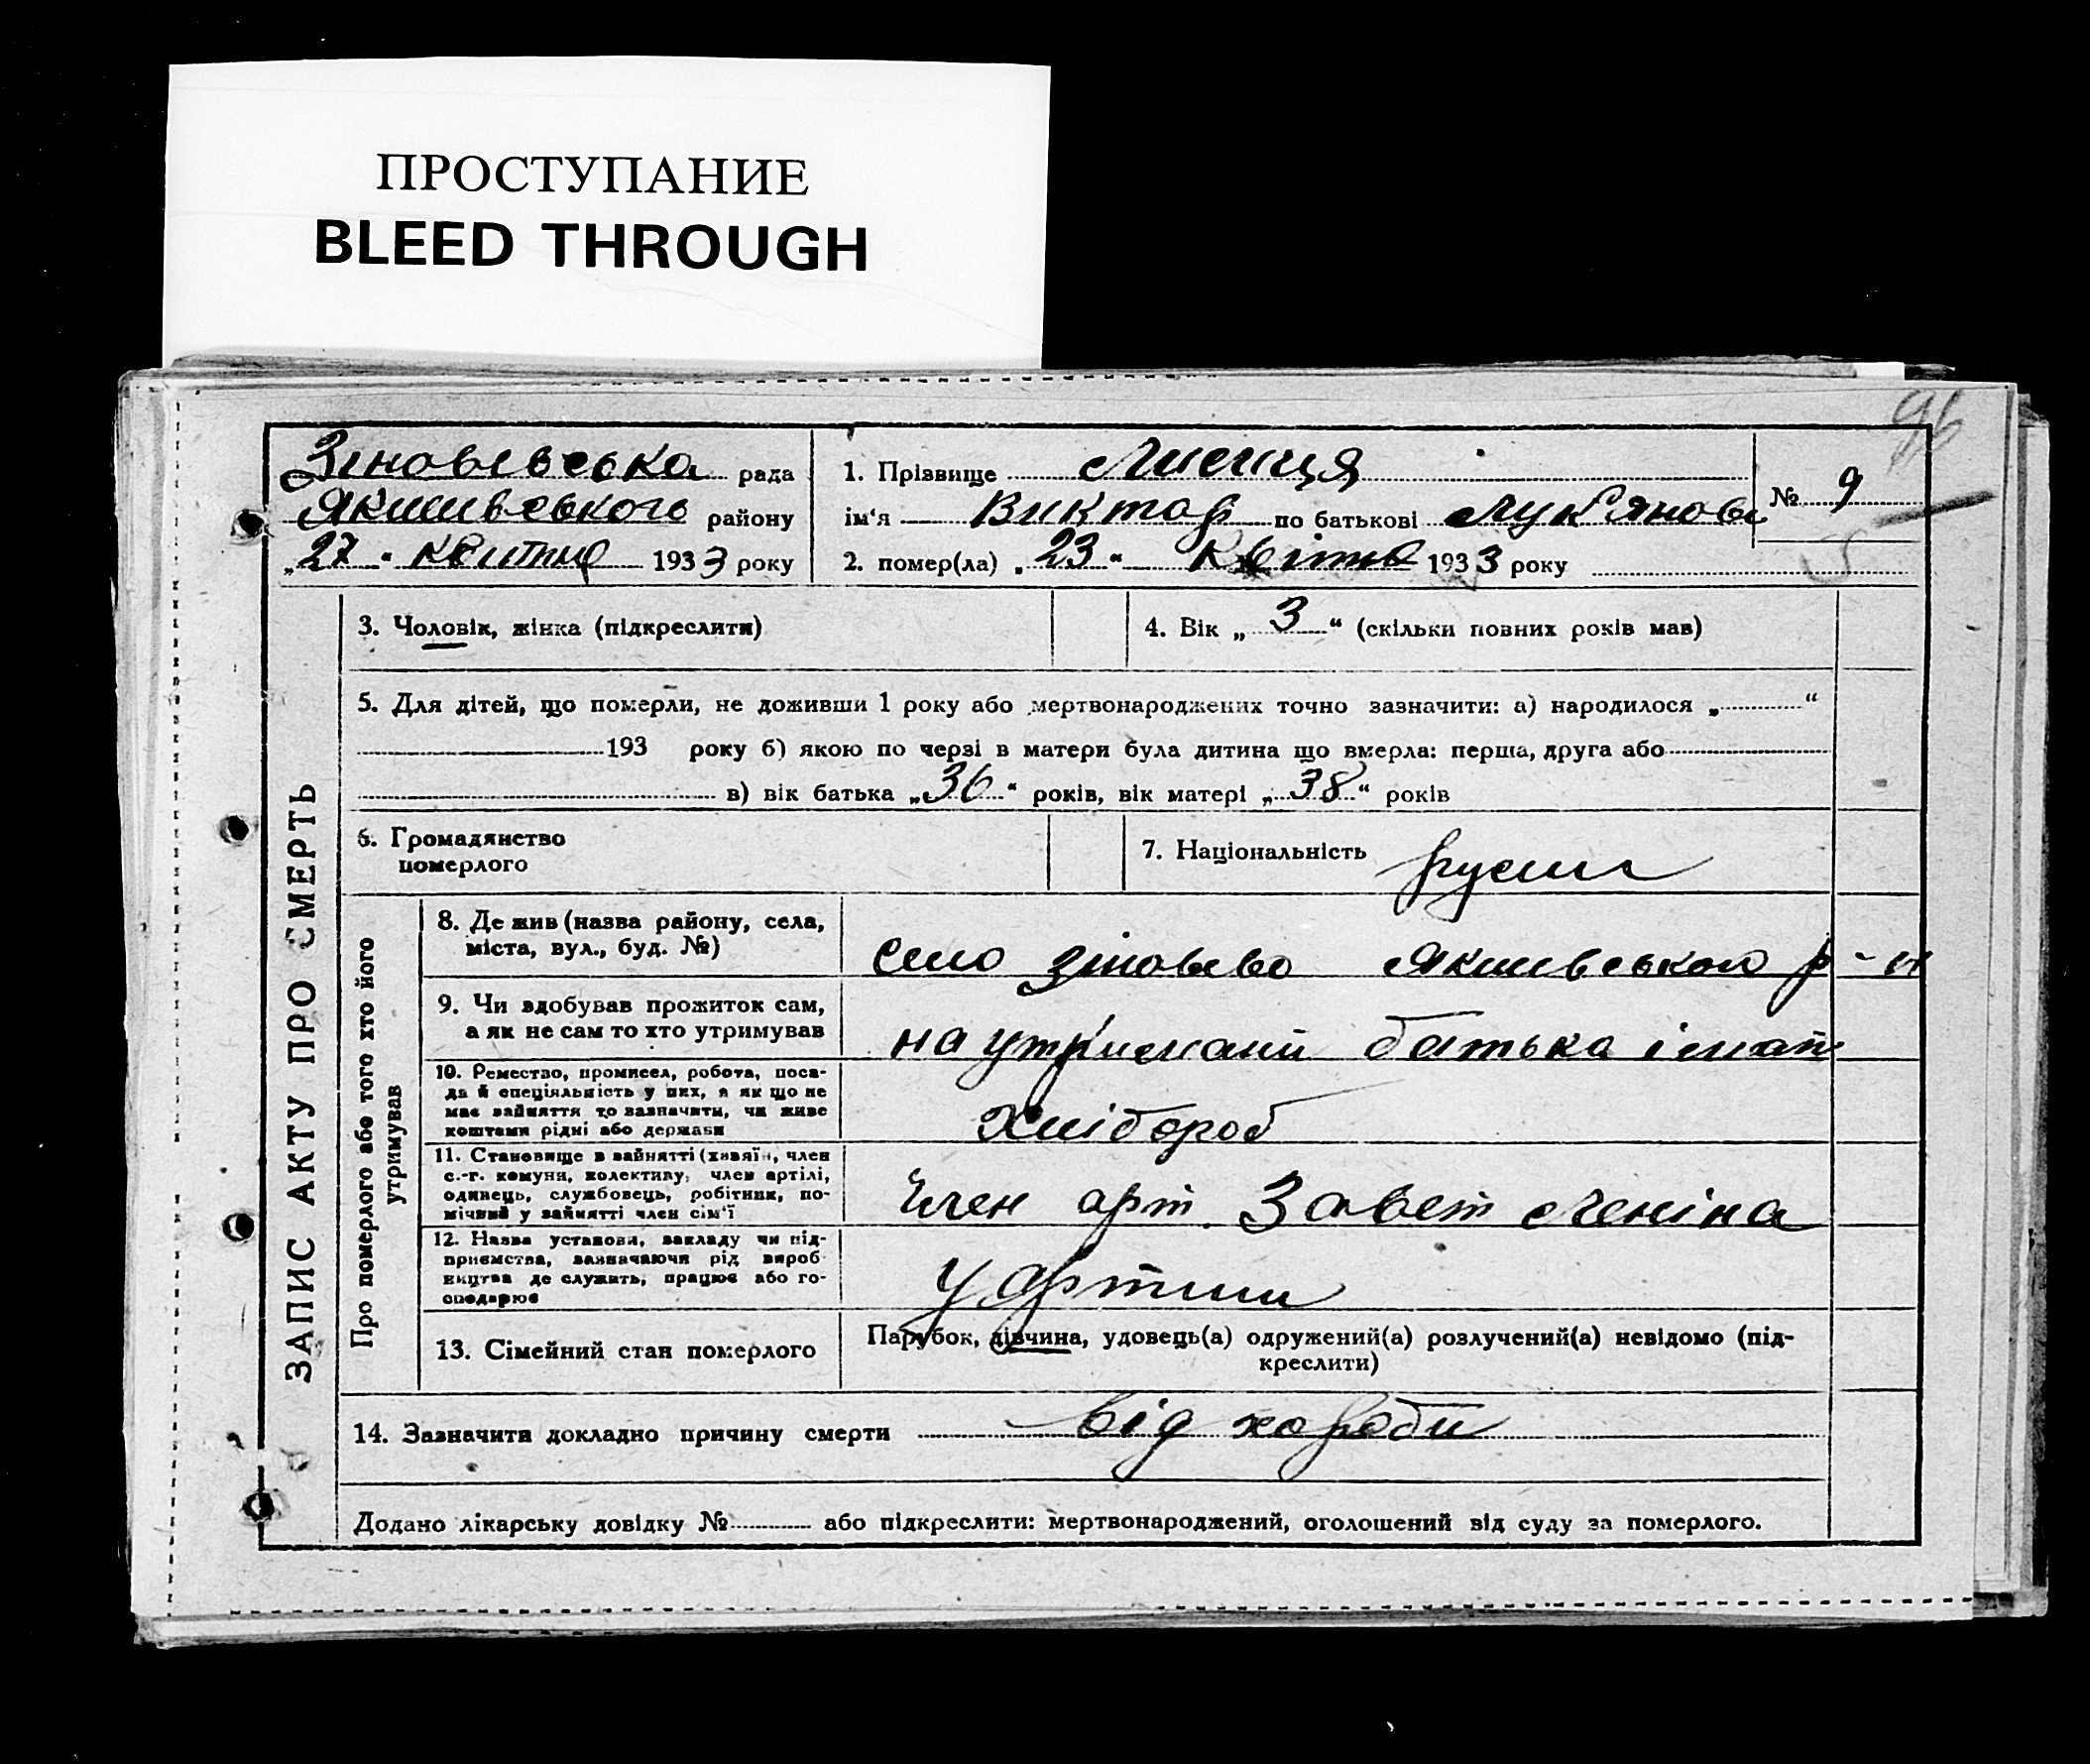 ПРОСТУПАНИЕ
BLEED THROUGH
96
Зіновьевська рада
Якимівського району
„27“ квітня 1933 року
1. Прізвище Лисиця
ім‘я Виктор по батькові Лук'янови
№ 9
2. помер(ла) „23“ квітня 1933 року
ЗАПИС АКТУ ПРО СМЕРТЬ
3. Чоловік, жінка (підкреслити)
4. Вік „3“ (скільки повних років мав)
5. Для дітей, що померли, не доживши 1 року або мертвонароджених точно зазначити: а) народилося „ “
193 року б) якою по черзі в матери була дитина що вмерла: перша, друга або
в) вік батька „36“ років, вік матері „38“ років
6. Громадянство
померлого
7. Національність русин
Про померлого або того хто його
утримував
8. Де жив (назва району, села,
міста, вул., буд. №)
село Зіновьево Якимівського р-н
9. Чи здобував прожиток сам,
а як не сам то хто утримував
на утримани батька і мат
10. Ремество, промисел, робота, поса-
да й спеціяльність у них, а як що не
має зайняття то зазначити, чи живе
коштами рідні або держави
Хлібороб
11. Становище в зайнятті (хазяїн, член
с.-г. комуни, колективу, член артілі,
одинець, службовець, робітник, по-
мічний у зайнятті член сім‘ї
Член арт. Завет Леніна
12. Назва установи, закладу чи під-
приємства, зазначаючи рід вироб-
ництва де служить, працює або го-
сподарює
У Артили
13. Сімейний стан померлого
Парубок, дівчина, удовець(а) одружений(а) розлучений(а) невідомо (під-
креслити)
14. Зазначити докладно причину смерти від хороби
Додано лікарську довідку № або підкреслити: мертвонароджений, оголошений від суду за померлого.